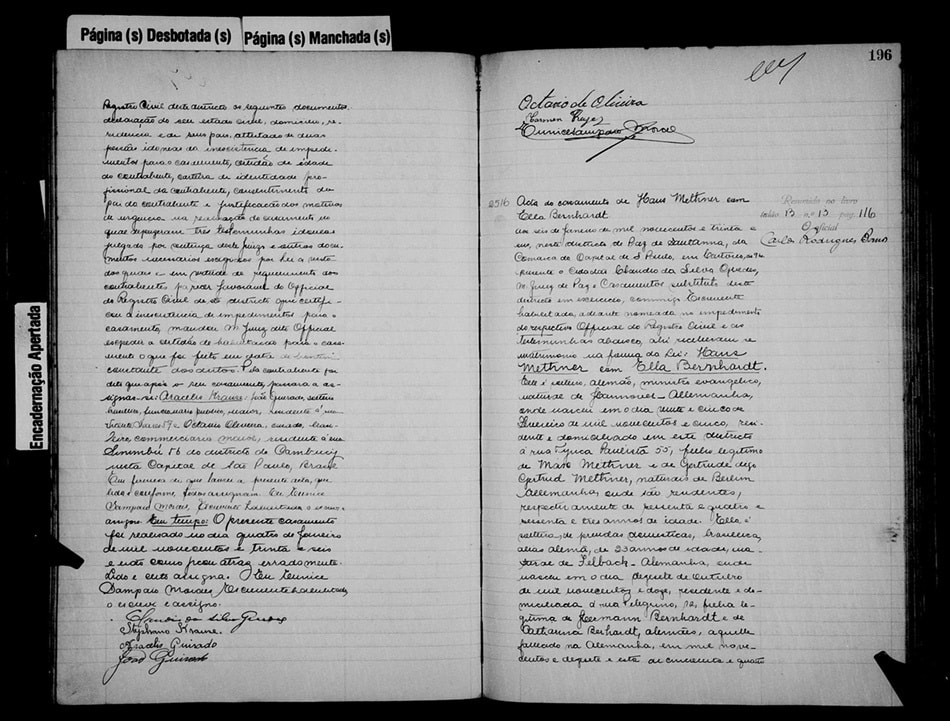 Página (s) Desbotada (s)
Página (s) Manchada (s)
Encadernação Apertada
Registro Civil deste districto os seguintes documentos:
declaração do seu estado civil, domicilio, re-
sidencia e de seus pais, attestado de duas
pessôas idoneas da inexistencia de impedi-
mentos para o casamento, certidão de idade
do contrahente, carteira de identidade pro-
fissional da contrahente, consentimento do
pai do contrahente e justificação dos motivos
de urgencia na realisação do casamento na
qual depuzeram tres testemunhas idoneas
julgada por sentença deste Juizo e outros docu-
mentos necessarios exigidos por Lei a vista
dos quaes e em virtude de requerimento dos
contrahentes parecer favoravel do Official
do Registro Civil deste districto que certifi-
cou a inexistencia de impedimentos para o
casamento, mandou M. Juiz dito Official
expedir a certidão de habilitação para o casa-
mento o que foi feito em data
constante dos autos. Pela contrahente foi
dito que após o seu casamento, passará a as-
signar-se: Aracelis Krause: João Guirado, solteiro
brasileiro, funccionario publico, maior, residente á rua
59 e Octavio Oliveira, casado, brasi-
leiro, commerciario maior, residente á rua
Sinimbú 56 do districto do Cambucy
nesta Capital de São Paulo, Brasil
Em firmeza do que lavrei a presente acta, que
lido e conforme, todos assignam. Eu Eunice
Sampaio Moraes, Escrevente habilitada o escrevi e
assigno. Em tempo: O presente casamento
foi realisado no dia quatro de Janeiro
de mil novecentos e trinta e seis
e não como ficou atraz erradamente.
Lido e certo assigna. Eu Eunice
Sampaio Moraes Escrevente habilitada,
o escrevi e assigno.
Claudio da Silva
Stephano Krause.
Aracelis Guirado
João Guirado
196
Octavio de Oliveira
Carmen
Eunice Sampaio Moraes
2516 Acta do casamento de Hans Methner com
Ella Bernhardt
Resumido no livro
talão 13 n.º 13 pag. 116
O official
Carlos Rodrigues
aos seis de Janeiro de mil novecentos e trinta e
seis, neste districto de Paz de Santanna, da
Comarca da Capital de S. Paulo, em Cartorio,
perante o Cidadão Claudio da Silva
M. Juiz de Paz e Casamentos substituto deste
districto em exercicio, commigo Escrevente
habilitada, adeante nomeada no impedimento
do respectivo Official do Registro Civil e as
testemunhas abaixo, ahi receberam-se
matrimonio na forma da Lei: Hans
Methner com Ella Bernhardt.
Elle é solteiro, alemão, ministro evangelico,
natural de Hannover - Allemanha,
onde nasceu em o dia vinte e cinco de
Fevereiro de mil novecentos e cinco, resi-
dente e domiciliado em este districto
á rua Paulista 55, filho legitimo
de Maso Methner e de Gertrude
Gertrud Methner, naturais de Berlim
Allemanha, onde são residentes,
respectivamente de sessenta e quatro e
sessenta e tres annos de idade. Ella é
solteira, de prendas domesticas, brasileira,
alias alemã, de 23 annos de idade, na-
tural de Felback - Alemanha, onde
nasceu em o dia dezesete de Outubro
de mil novecentos e doze, residente e do-
miciliada á rua Peregrino, 12, filha le-
gitima de Hermann Bernhardt e de
Catharina Berhardt, alemães, aquelle
fallecido na Alemanha, em mil nove-
centos e dezesete e esta de cincoenta e quatro